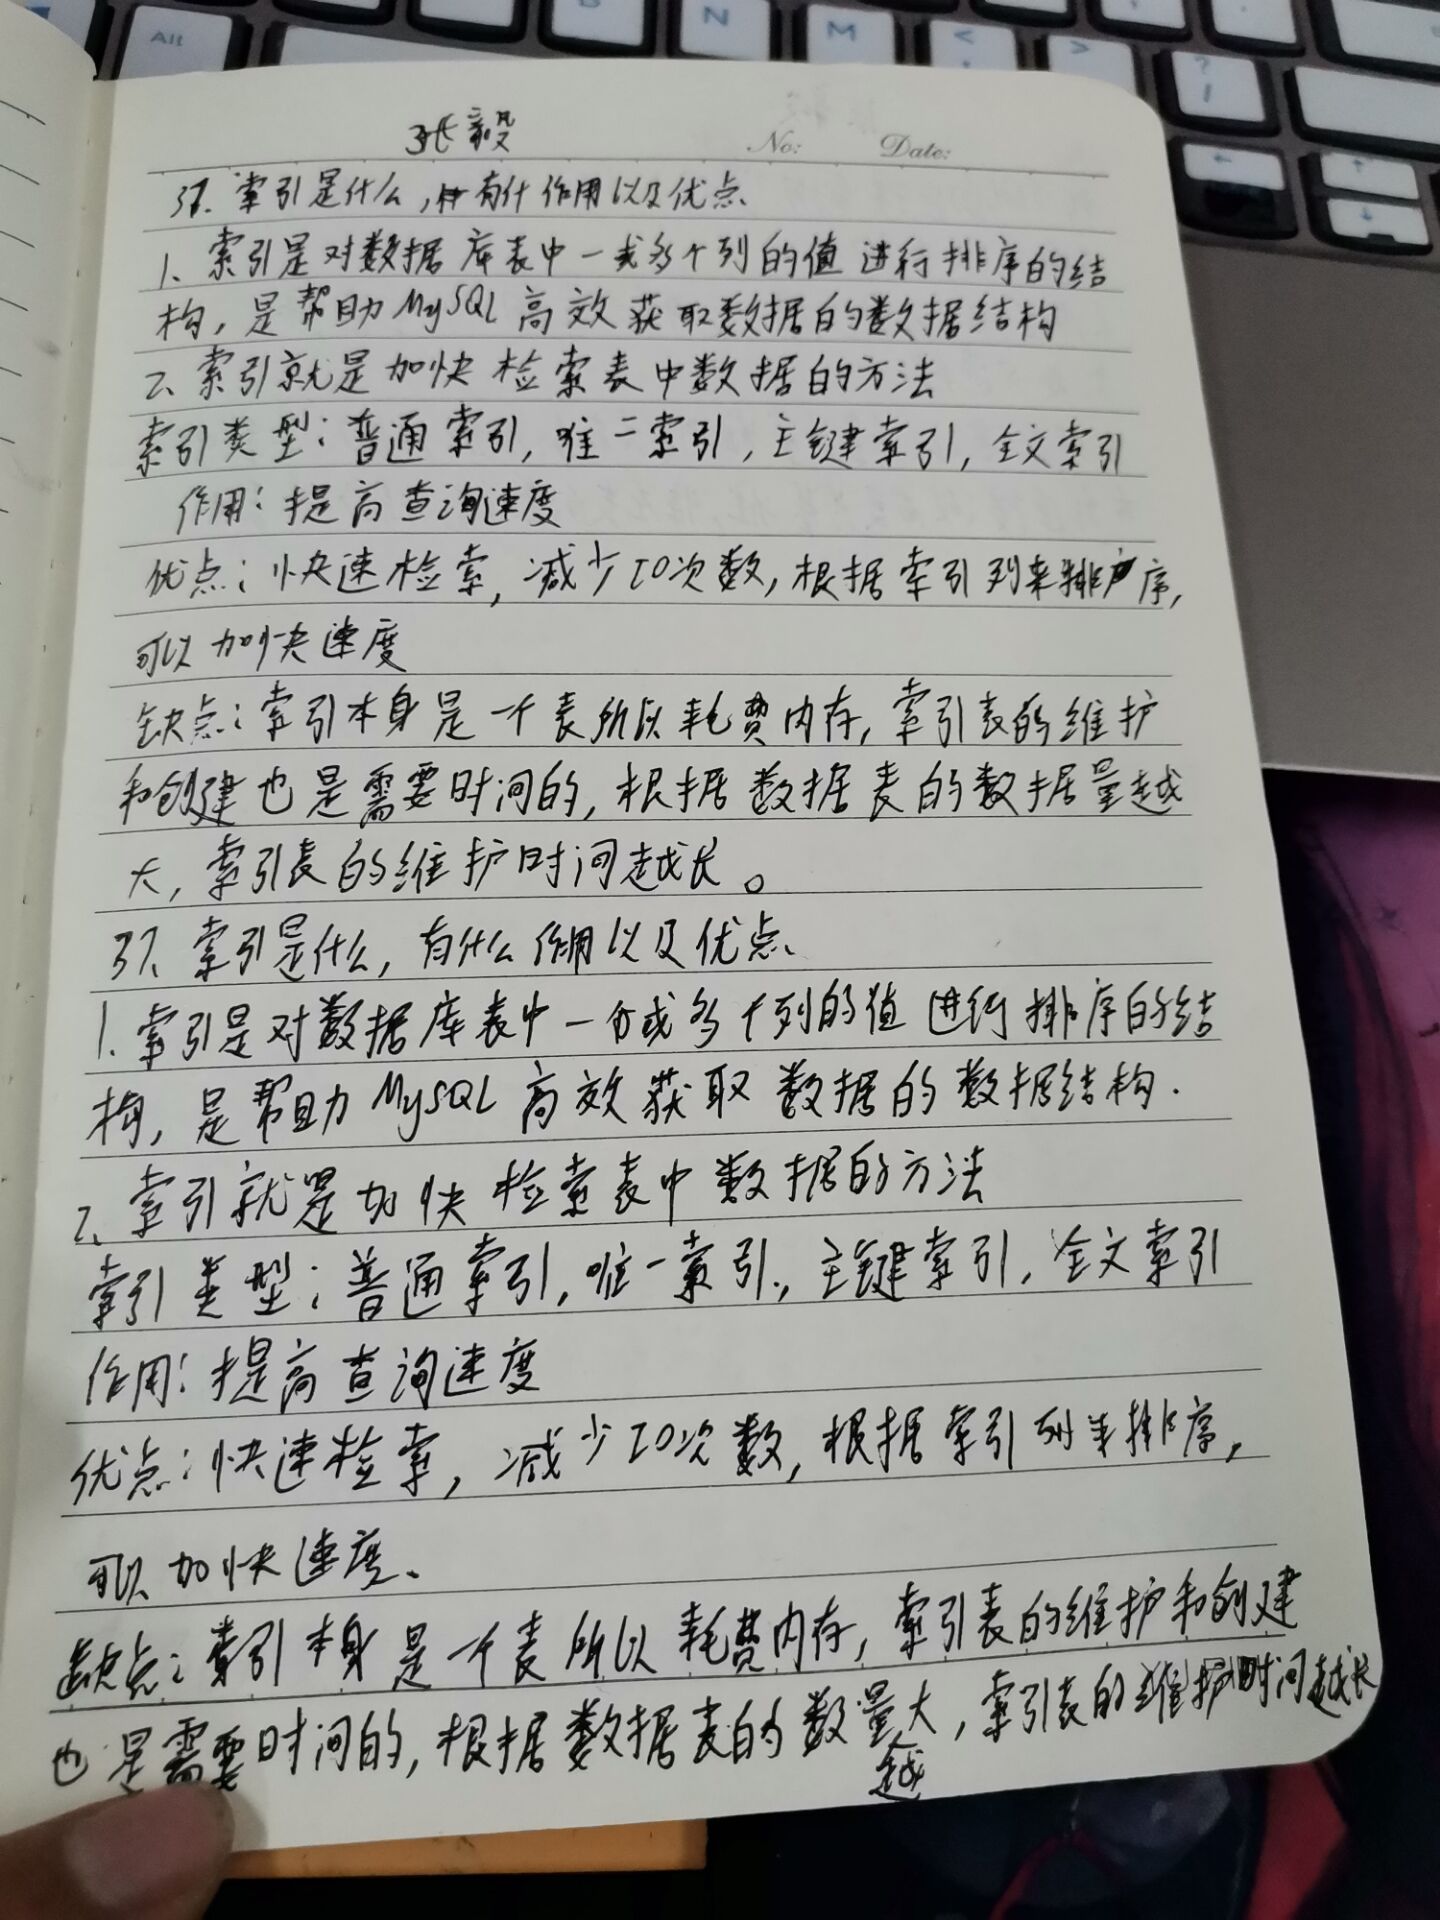 Alt
B
N
M
<
>
?
/
张毅
No:
Date:
37、索引是什么,有什作用以及优点、
1、索引是对数据库表中一或多个列的值进行排序的结
构,是帮助MySQL高效获取数据的的数据结构
2、索引就是加快检索表中数据的方法
索引类型:普通索引,唯一索引,主键索引,全文索引
作用:提高查询速度
优点:快速检索,减少IO次数,根据索引列来排序,
可以加快速度
缺点:索引本身是一个表所以耗费内存,索引表的维护
和创建也是需要时间的,根据数据表的数据量越
大,索引表的维护时间越长。
37、索引是什么,有什么作用以及优点、
1.索引是对数据库表中一个或多个列的值进行排序的结
构,是帮助MySQL高效获取数据的数据结构.
2、索引就是加快检索表中数据的方法
索引类型:普通索引,唯一索引,主键索引,全文索引
作用:提高查询速度
优点:快速检索,减少IO次数,根据索引列来排序,
可以加快速度、
缺点:索引本身是一个表所以耗费内存,索引表的维护和创建
也是需要时间的,根据数据表的数量越大,索引表的维护时间越长